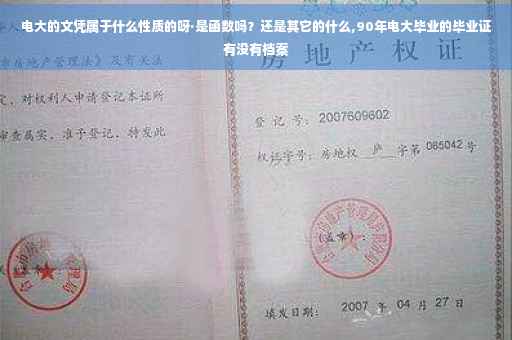 电大的文凭属于什么性质的呀·是函数吗？还是其它的什么,90年电大毕业的毕业证
有没有档案
房地产管理法》及有关法
定，对权利人申请登记本证所
审查属实，准予登记，特发此
房地产权证
登记号：2007609602
权证字号：房地权 庐 字第 065042 号
(盖章)：
填发日期：2007 年 04 月 27 日